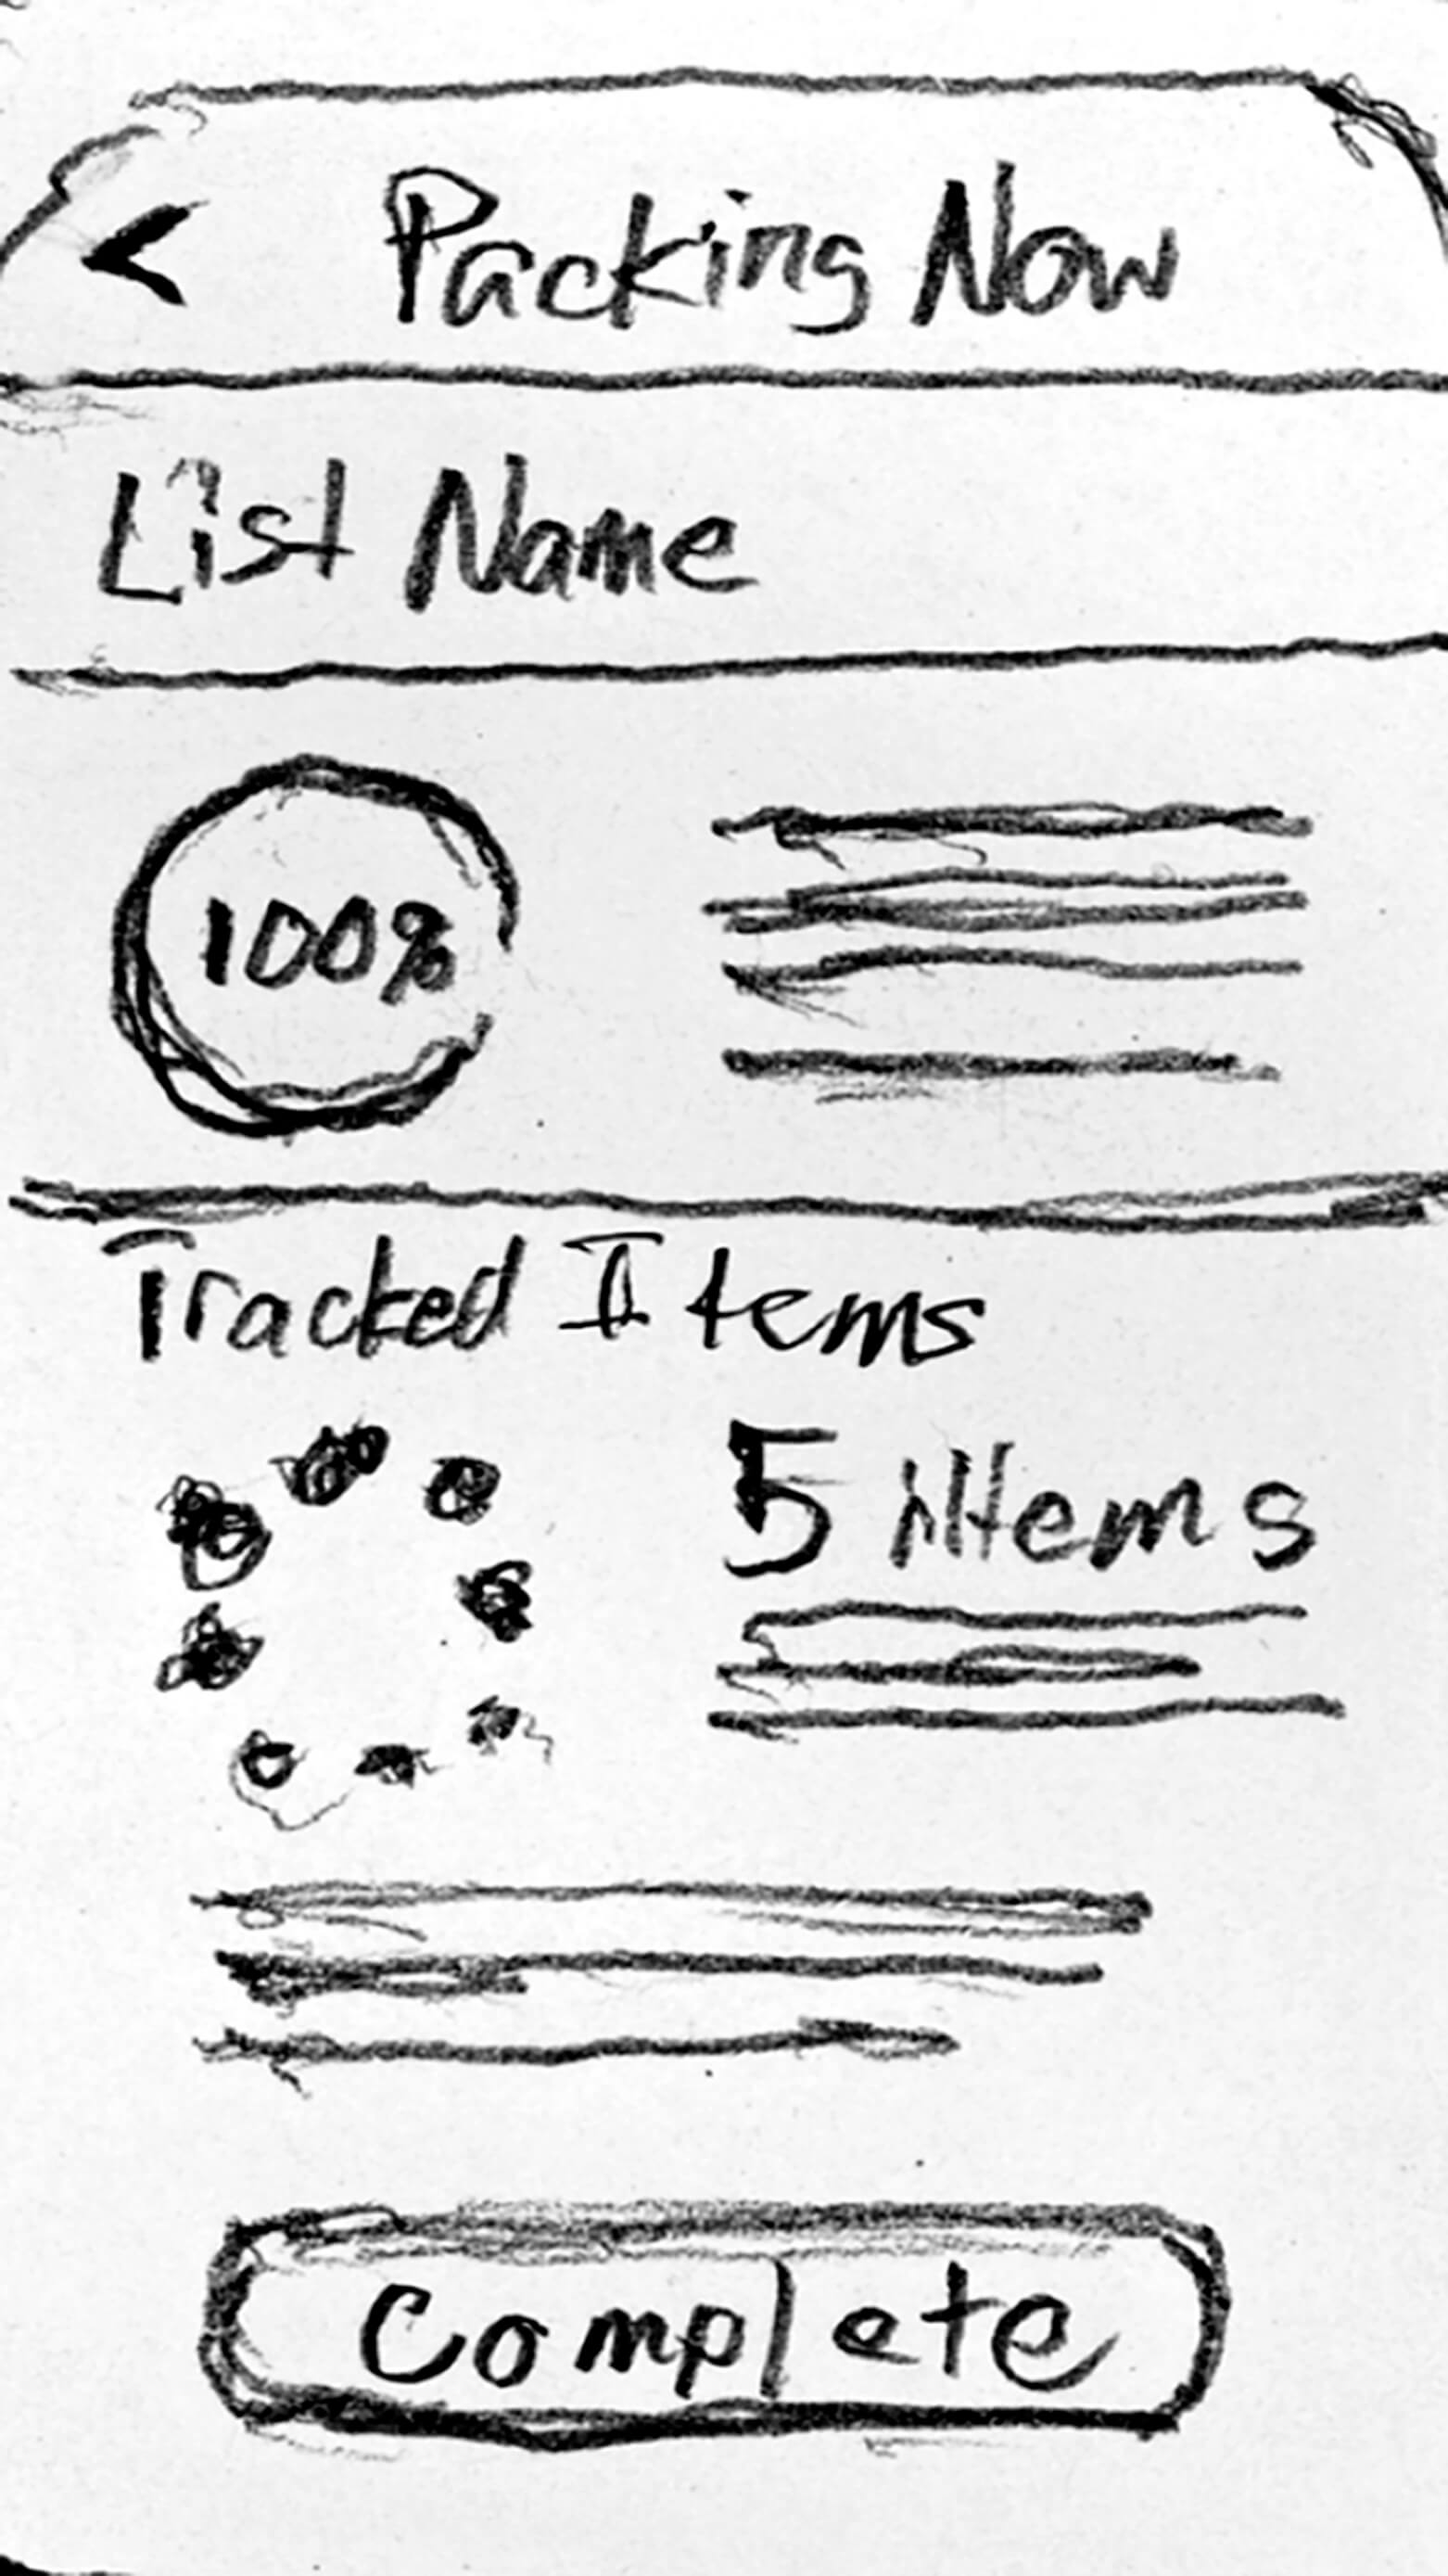 < Packing Now
List Name
100%
Tracked Items
5 items
Complete